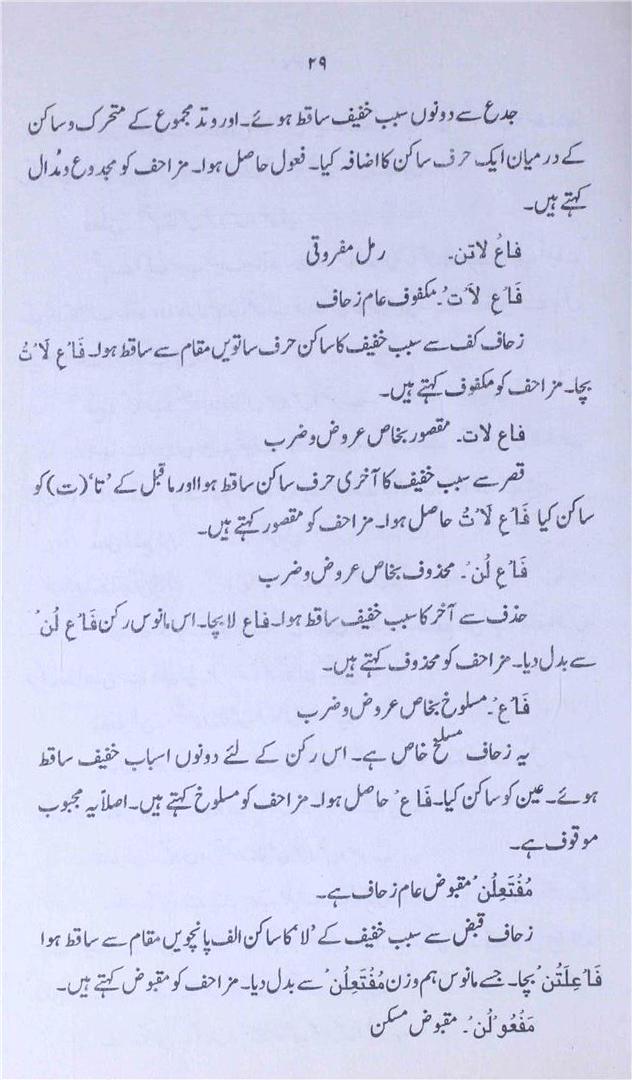 ۲۹
جدع سے دونوں سبب خفیف ساقط ہوئے۔ اور وتد مجموع کے متحرک و ساکن
کے درمیان ایک حرف ساکن کا اضافہ کیا۔ فعول حاصل ہوا۔ مزاحف کو مجدوع و مُدال
کہتے ہیں۔
فاعُ لاتن۔ رمل مفروقی
فَاعِ لَاتُ۔ مکفوف عام زحاف
زحاف کف سے سبب خفیف کا ساکن حرف ساتویں مقام سے ساقط ہوا۔ فَاعِ لَاتُ
بچا۔ مزاحف کو مکفوف کہتے ہیں۔
فاع لات۔ مقصور بخاص عروض و ضرب
قصر سے سبب خفیف کا آخری حرف ساکن ساقط ہوا اور ماقبل کے 'تا' (ت) کو
ساکن کیا فَاعِ لَاتُ حاصل ہوا۔ مزاحف کو مقصور کہتے ہیں۔
فَاعِ لُنْ۔ محذوف بخاص عروض و ضرب
حذف سے آخر کا سبب خفیف ساقط ہوا۔ فاع لا بچا۔ اس مانوس رکن فَاعِ لُنْ
سے بدل دیا۔ مزاحف کو محذوف کہتے ہیں۔
فَاعْ۔ مسلوخ بخاص عروض و ضرب
یہ زحاف مسلخ خاص ہے۔ اس رکن کے لئے دونوں اسباب خفیف ساقط
ہوئے۔ عین کو ساکن کیا۔ فَاعْ حاصل ہوا۔ مزاحف کو مسلوخ کہتے ہیں۔ اصلاً یہ مجبوب
موقوف ہے۔
مُفْتَعِلُنْ مقبوض عام زحاف ہے۔
زحاف قبض سے سبب خفیف کے 'لا' کا ساکن الف پانچویں مقام سے ساقط ہوا
فَاعِلَتُنْ بچا۔ جسے مانوس ہم وزن مُفْتَعِلُنْ سے بدل دیا۔ مزاحف کو مقبوض کہتے ہیں۔
مَفْعُوْلُنْ۔ مقبوض مسکن